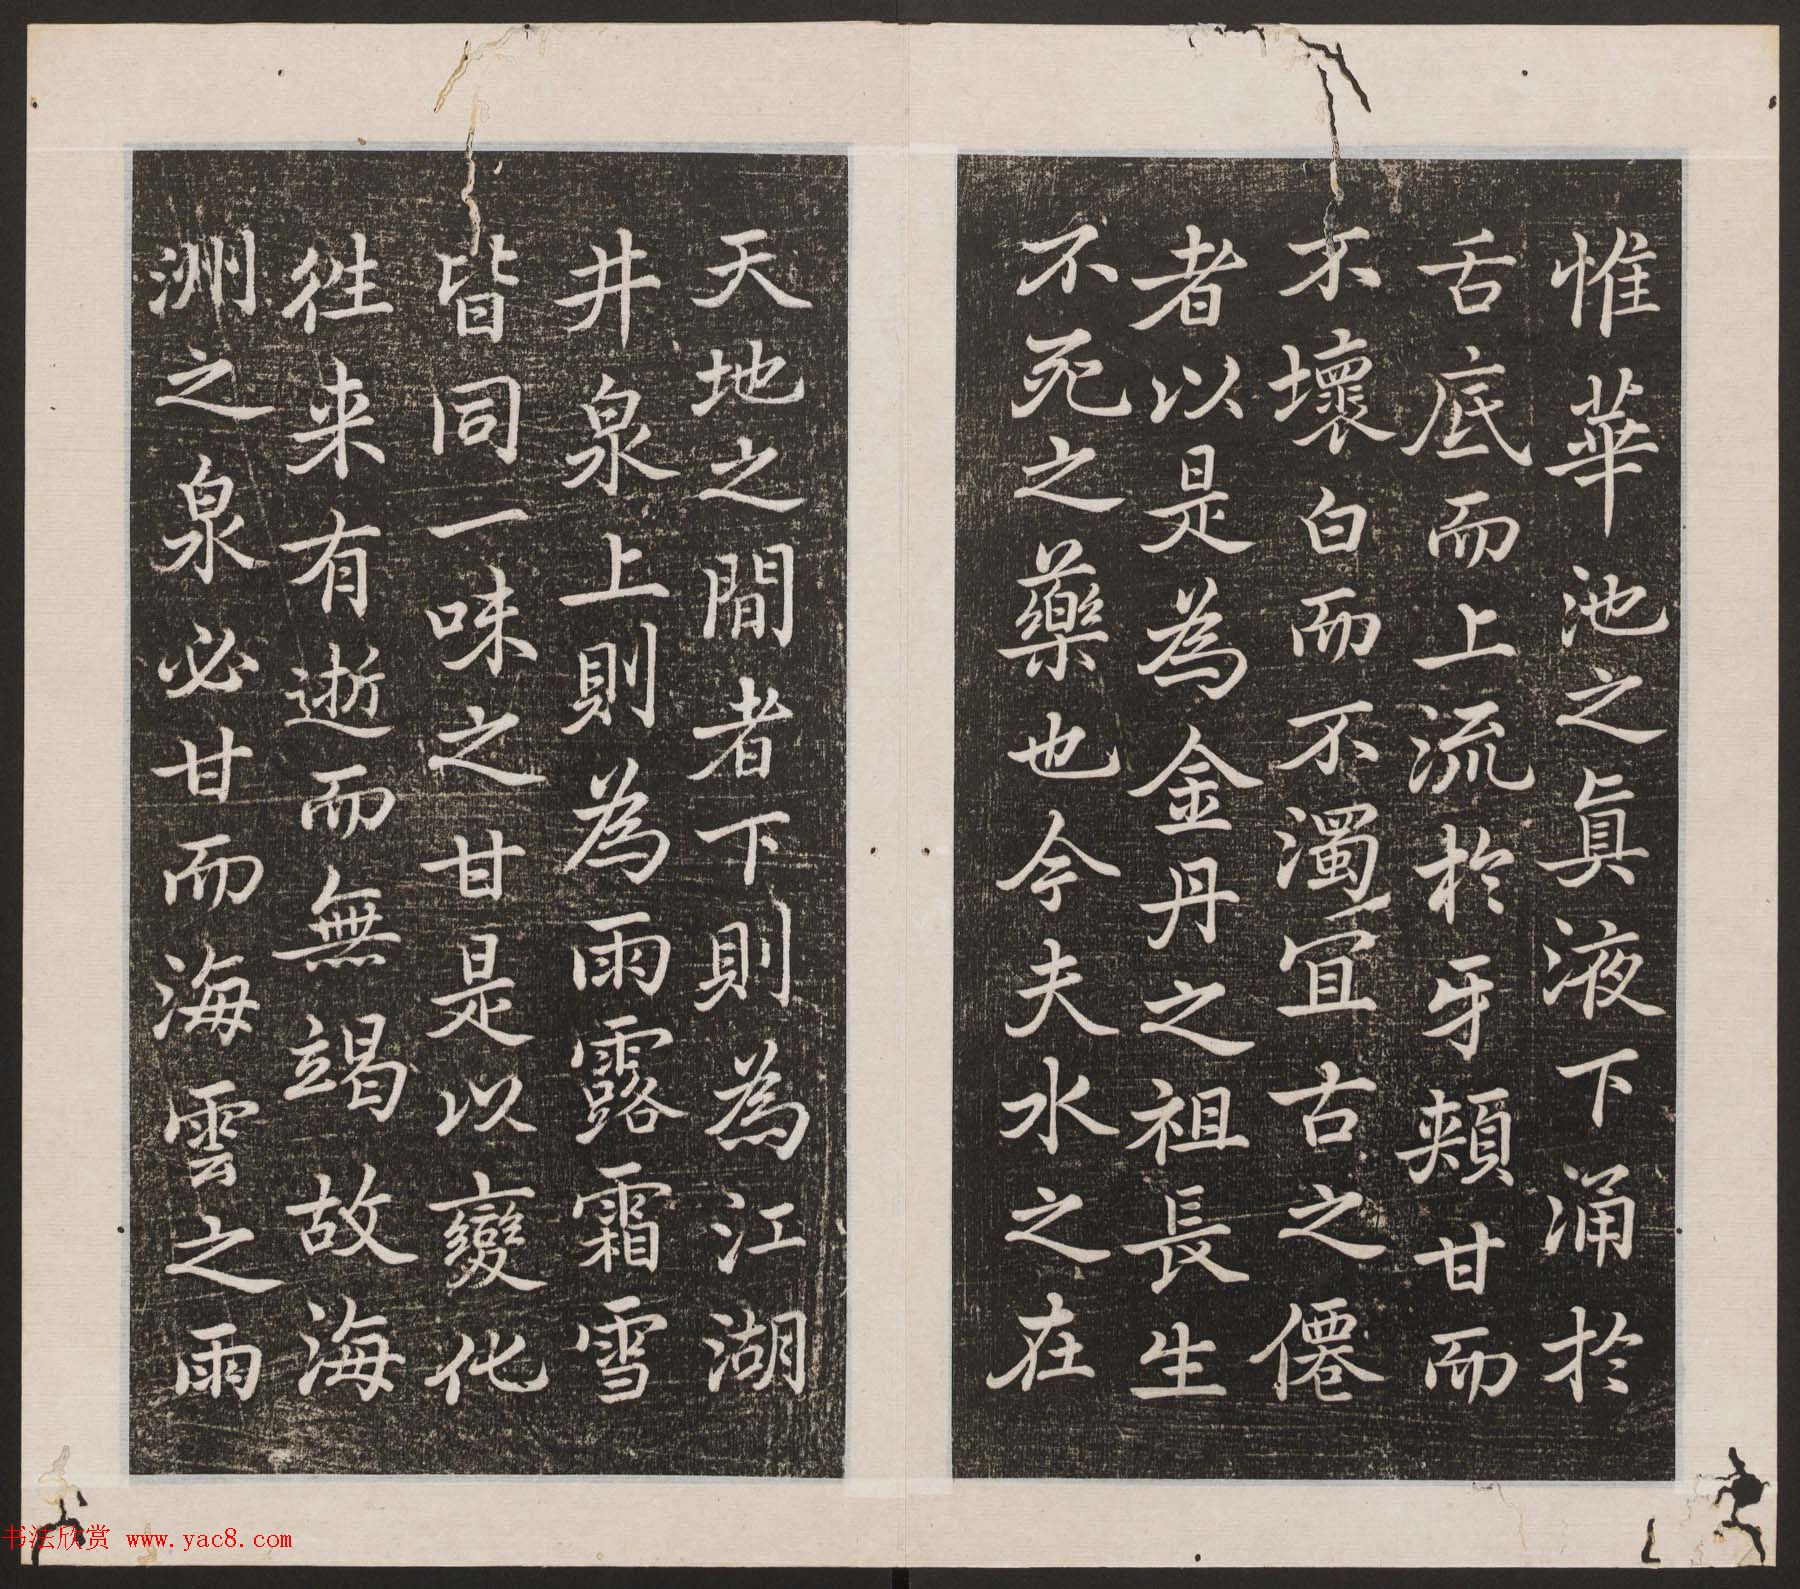 惟華池之真液下涌於
舌底而上流於牙頰甘而
不壞白而不濁宜古之僊
者以是為金丹之祖長生
不死之藥也今夫水之在
天地之間者下則為江湖
井泉上則為雨露霜雪
皆同一味之甘是以變化
往来有逝而無竭故海
洲之泉必甘而海雲之雨
书法欣赏 www.yac8.com